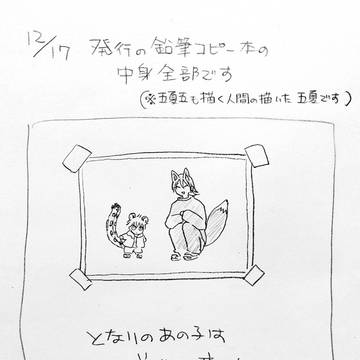 12/17 発行の鉛筆コピー本の
中身全部です
(※五夏五も描く人間の描いた五夏です)
となりのあの子は